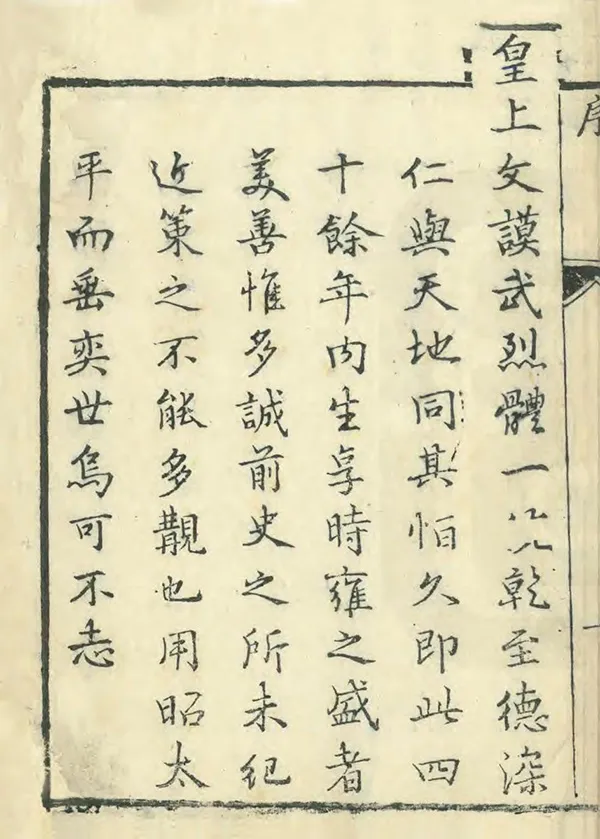 序
皇上文謨武烈體一乾至德深
仁與天地同其怕久即此四
十餘年内生享時雍之盛者
美善惟多誠前史之所未紀
近策之不能多覯也用昭太
平而垂奕世烏可不志